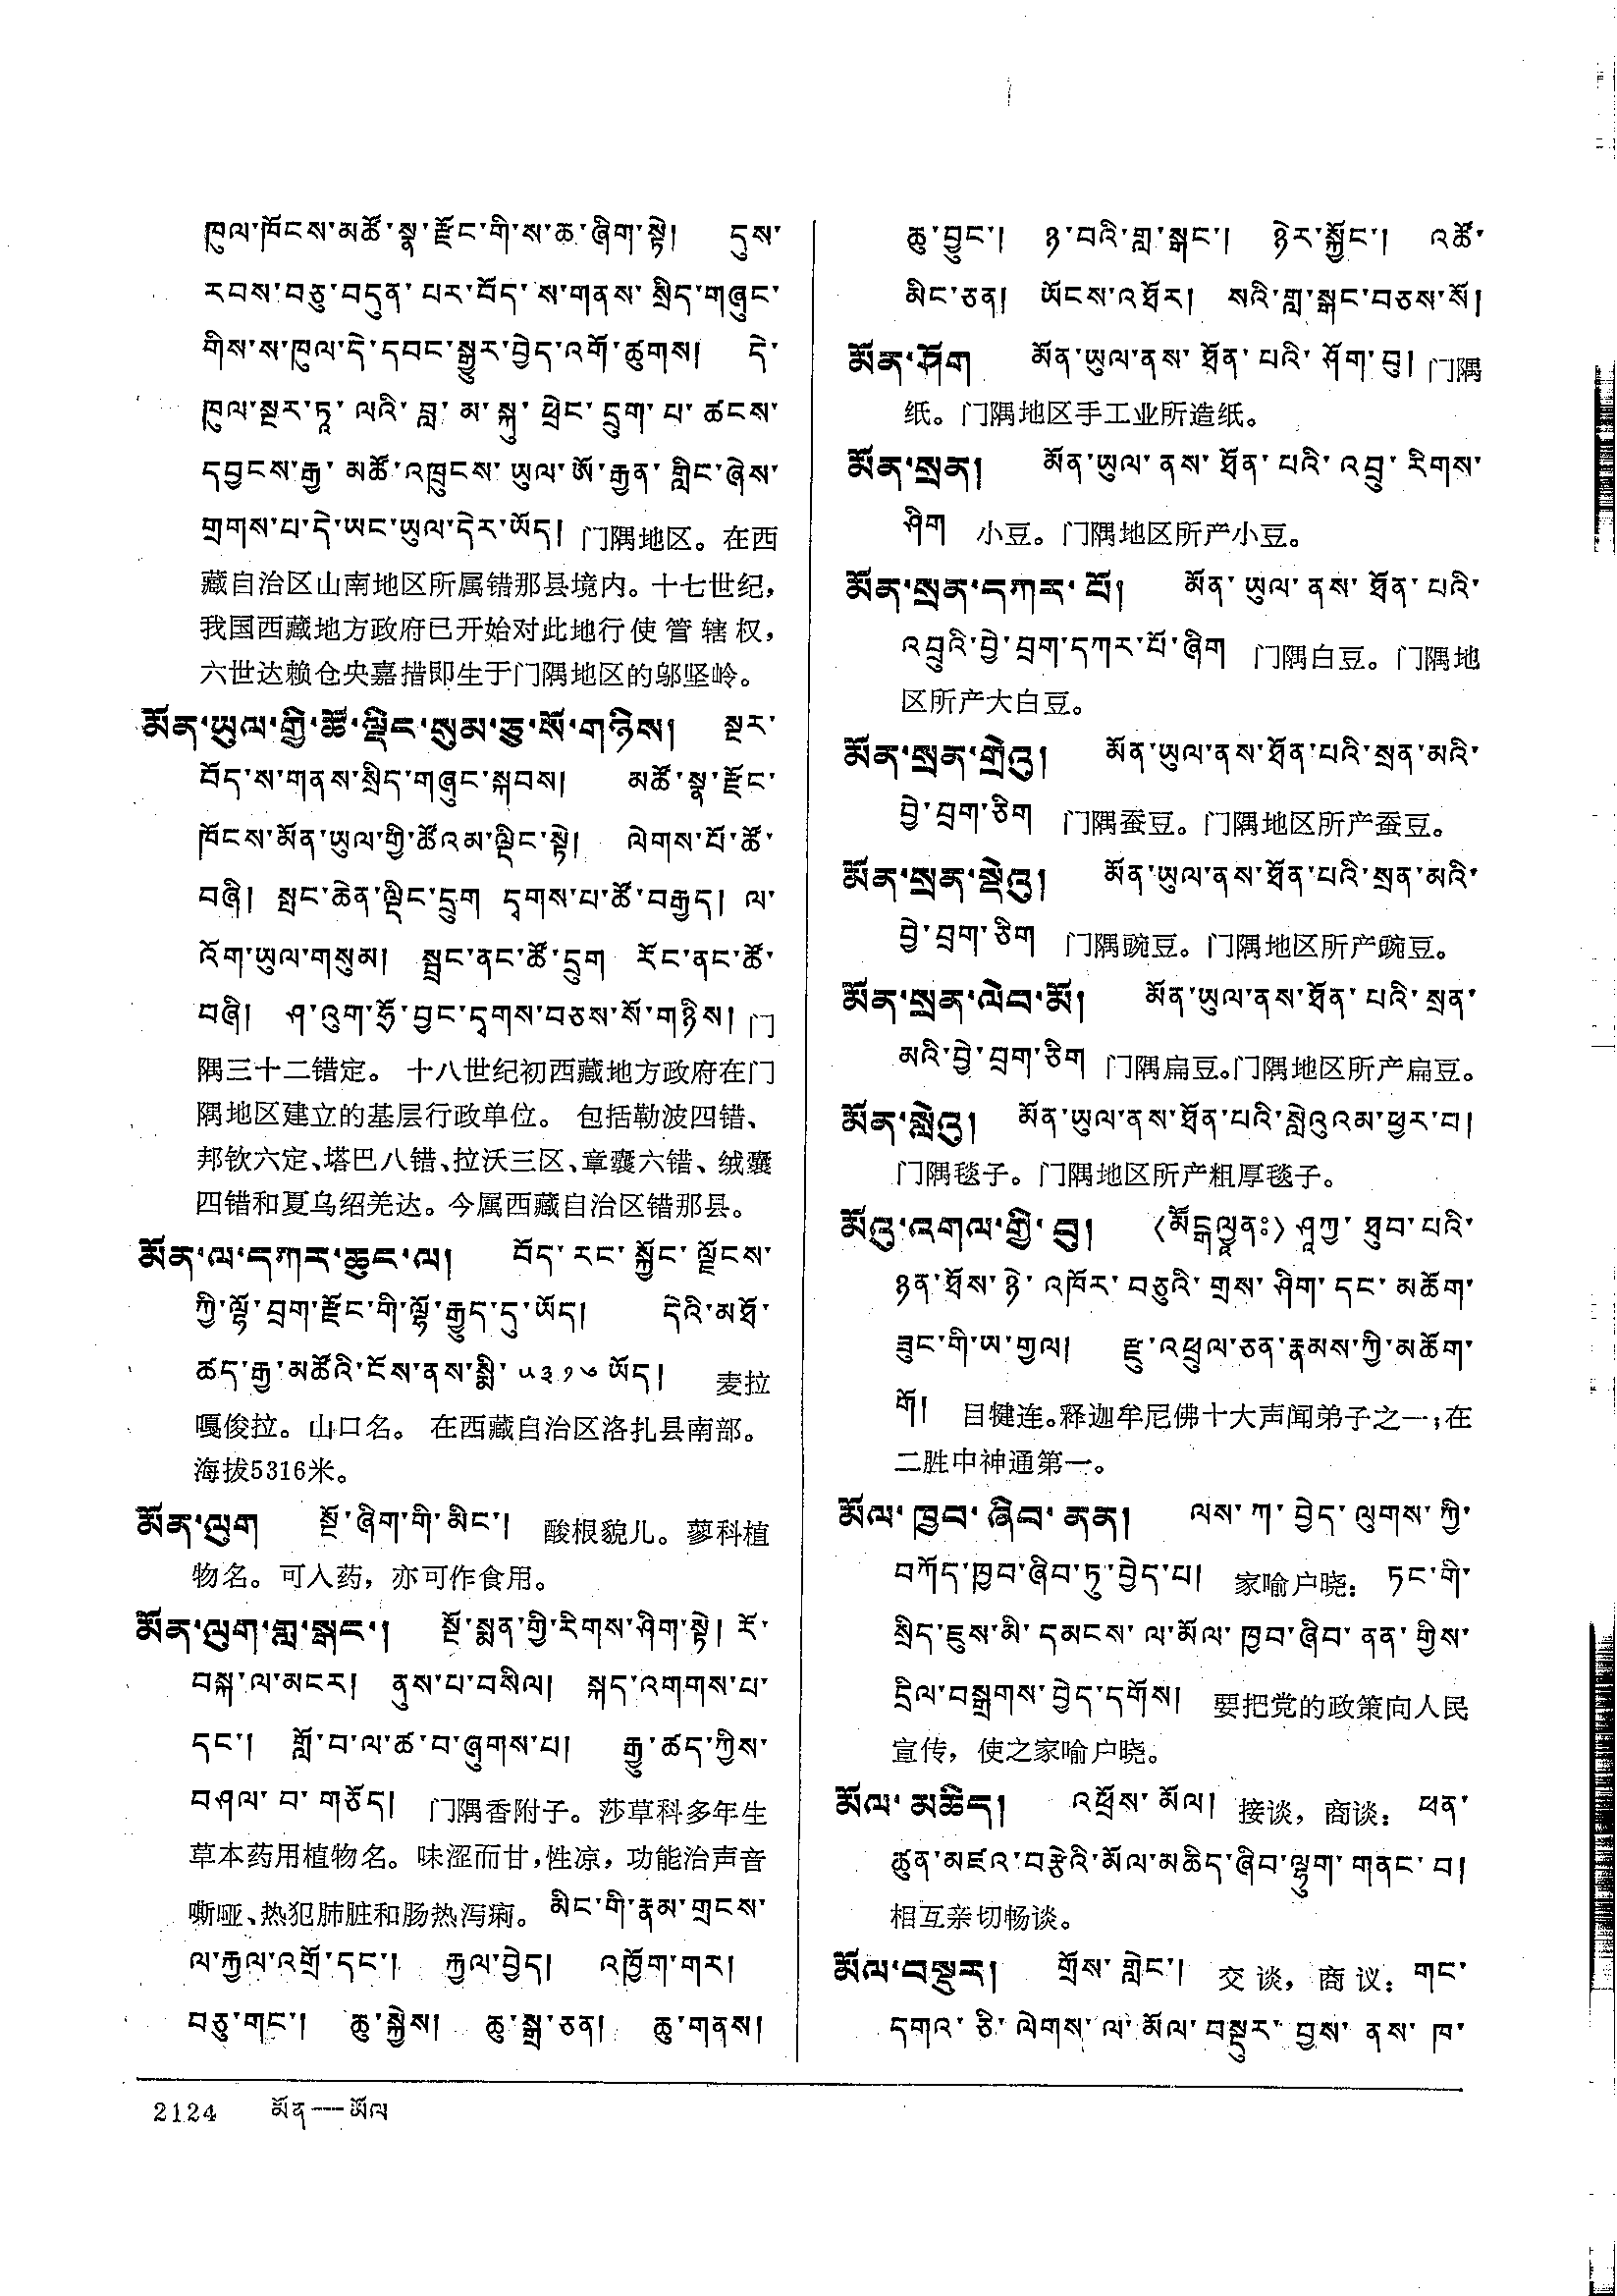 ཁུལ་ཁོངས་མཚོ་སྣ་རྫོང་གི་ས་ཆ་ཞིག་སྟེ། དུས་
རབས་བཅུ་བདུན་པར་བོད་ས་གནས་སྲིད་གཞུང་
གིས་ས་ཁུལ་དེ་དབང་སྒྱུར་བྱེད་འགོ་ཚུགས། དེ་
ཁུལ་སྔར་ཏཱ་ལའི་བླ་མ་སྐུ་ཕྲེང་དྲུག་པ་ཚངས་
དབྱངས་རྒྱ་མཚོ་འཁྲུངས་ཡུལ་ཨོ་རྒྱན་གླིང་ཞེས་
གྲགས་པ་དེ་ཡང་ཡུལ་དེར་ཡོད། 门隅地区。在西
藏自治区山南地区所属错那县境内。十七世纪，
我国西藏地方政府已开始对此地行使管辖权，
六世达赖仓央嘉措即生于门隅地区的邬坚岭。
མོན་ཡུལ་གྱི་ཚོ་ལྡིང་སུམ་ཅུ་སོ་གཉིས། སྔར་
བོད་ས་གནས་སྲིད་གཞུང་སྐབས། མཚོ་སྣ་རྫོང་
ཁོངས་མོན་ཡུལ་གྱི་ཚོའམ་ལྡིང་སྟེ། ལེགས་པོ་ཚོ་
བཞི། སྤང་ཆེན་ལྡིང་དྲུག དྭགས་པ་ཚོ་བརྒྱད། ལ་
འོག་ཡུལ་གསུམ། སྦྲང་ནང་ཚོ་དྲུག རོང་ནང་ཚོ་
བཞི། ཤ་འུག་ཧྲོ་བྱང་དྭགས་བཅས་སོ་གཉིས། 门
隅三十二错定。 十八世纪初西藏地方政府在门
隅地区建立的基层行政单位。 包括勒波四错、
邦钦六定、塔巴八错、拉沃三区、章囊六错、绒囊
四错和夏乌绍羌达。今属西藏自治区错那县。
མོན་ལ་དཀར་ཆུང་ལ། བོད་རང་སྐྱོང་ལྗོངས་
ཀྱི་ལྷོ་བྲག་རྫོང་གི་ལྷོ་རྒྱུད་དུ་ཡོད། དེའི་མཐོ་
ཚད་རྒྱ་མཚོའི་ངོས་ནས་སྨི་༥༣༡༦ཡོད། 麦拉
嘎俊拉。山口名。 在西藏自治区洛扎县南部。
海拔5316米。
མོན་ལུག སྔོ་ཞིག་གི་མིང་། 酸根貌儿。蓼科植
物名。可入药，亦可作食用。
མོན་ལུག་གླ་སྒང་། སྔོ་སྨན་གྱི་རིགས་ཤིག་སྟེ། རོ་
བསྐ་ལ་མངར། ནུས་པ་བསིལ། སྐད་འགགས་པ་
དང་། གློ་བ་ལ་ཚ་བ་ཞུགས་པ། རྒྱུ་ཚད་ཀྱིས་
བཤལ་བ་གཅོད། 门隅香附子。莎草科多年生
草本药用植物名。味涩而甘，性凉，功能治声音
嘶哑、热犯肺脏和肠热泻痢。མིང་གི་རྣམ་གྲངས་
ལ་རྐྱལ་འགྲོ་དང་། རྐྱལ་བྱེད། འཁྱོག་གར།
བཅུ་གང་། ཆུ་སྐྱེས། ཆུ་སྒྲ་ཅན། ཆུ་གནས།
ཆུ་བྱུང་། ཉ་བའི་གླ་སྒང་། ཉེར་སྐྱོང་། འཚོ་
མིང་ཅན། ཡོངས་འཐོར། སའི་གླ་སྒང་བཅས་སོ།
མོན་ཤོག མོན་ཡུལ་ནས་ཐོན་པའི་ཤོག་བུ། 门隅
纸。门隅地区手工业所造纸。
མོན་སྲན། མོན་ཡུལ་ནས་ཐོན་པའི་འབྲུ་རིགས་
ཤིག 小豆。门隅地区所产小豆。
མོན་སྲན་དཀར་པོ། མོན་ཡུལ་ནས་ཐོན་པའི་
འབྲུའི་བྱེ་བྲག་དཀར་པོ་ཞིག 门隅白豆。门隅地
区所产大白豆。
མོན་སྲན་གྲེའུ། མོན་ཡུལ་ནས་ཐོན་པའི་སྲན་མའི་
བྱེ་བྲག་ཅིག 门隅蚕豆。门隅地区所产蚕豆。
མོན་སྲན་སྡེའུ། མོན་ཡུལ་ནས་ཐོན་པའི་སྲན་མའི་
བྱེ་བྲག་ཅིག 门隅豌豆。门隅地区所产豌豆。
མོན་སྲན་ལེབ་མོ། མོན་ཡུལ་ནས་ཐོན་པའི་སྲན་
མའི་བྱེ་བྲག་ཅིག 门隅扁豆。门隅地区所产扁豆。
མོན་སླེའུ། མོན་ཡུལ་ནས་ཐོན་པའི་སླེའུའམ་ཕྱར་བ།
门隅毯子。门隅地区所产粗厚毯子。
མོའུ་འགལ་གྱི་བུ། ཤཱཀྱ་ཐུབ་པའི་
ཉན་ཐོས་ཉེ་འཁོར་བཅུའི་གྲས་ཤིག་དང་མཆོག་
ཟུང་གི་ཡ་གྱལ། རྫུ་འཕྲུལ་ཅན་རྣམས་ཀྱི་མཆོག་
གོ། 目犍连。释迦牟尼佛十大声闻弟子之一；在
二胜中神通第一。
མོལ་ཁྱབ་ཞིབ་ནན། ལས་ཀ་བྱེད་ལུགས་ཀྱི་
བཀོད་ཁྱབ་ཞིབ་ཏུ་བྱེད་པ། 家喻户晓：ཏང་གི་
སྲིད་ཇུས་མི་དམངས་ལ་མོལ་ཁྱབ་ཞིབ་ནན་གྱིས་
དྲིལ་བསྒྲགས་བྱེད་དགོས། 要把党的政策向人民
宣传，使之家喻户晓。
མོལ་མཆིད། འཕྲོས་མོལ། 接谈，商谈：ཕན་
ཚུན་མཛའ་བརྩེའི་མོལ་མཆིད་ཞིབ་ལྷུག་གནང་བ།
相互亲切畅谈。
མོལ་བསྡུར། གྲོས་གླེང་། 交谈，商议：གང་
དགའ་ཅི་ལེགས་ལ་མོལ་བསྡུར་བྱས་ནས་ཁ་
2124 མོན---མོལ